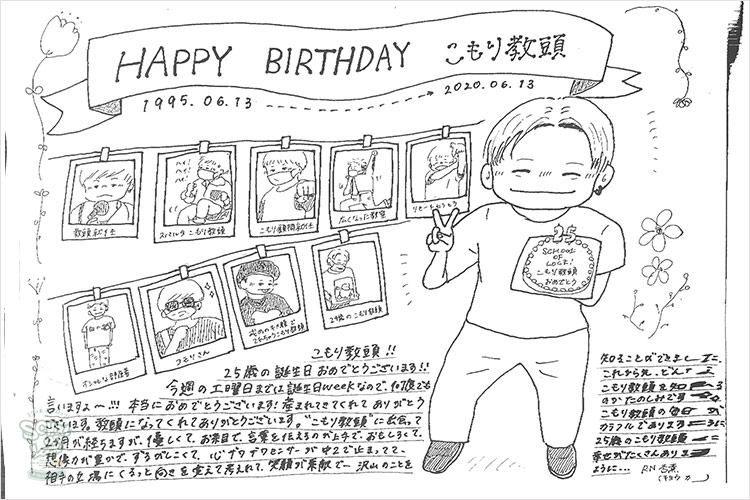 HAPPY BIRTHDAY こもり教頭
1995.06.13 → 2020.06.13
教頭就任
ヘイ! ヘイ! ヘイ!
こもり教頭
こもり校長就任
リモートじゅぎょう
コモリさん
25歳のこもり教頭
25
SCHOOL
OF
LOCK!
こもり教頭
おめでとう
こもり教頭!!
25歳の誕生日おめでとうございます!!
今週の土曜日までは誕生日weekなので、何度でも
言いますよ〜!!! 本当におめでとうございます! 産まれてきてくれてありがとう
ございます。教頭になってくれてありがとうございます。"こもり教頭"に出会って
2ヶ月が経ちますが、優しくて、お茶目で、言葉を伝えるのが上手で、おもしろくて、
想像力が豊かで、ずるがしこくて、心
相手の立場にくるっと向きを変えて考えれて、笑顔が素敵で… 沢山のことを
知ることができました。
これから先、どんな
こもり教頭を知れる
のかたのしみです
こもり教頭の毎日が
カラフルであります
25歳のこもり教頭
幸せがたくさんあります
ように… RN